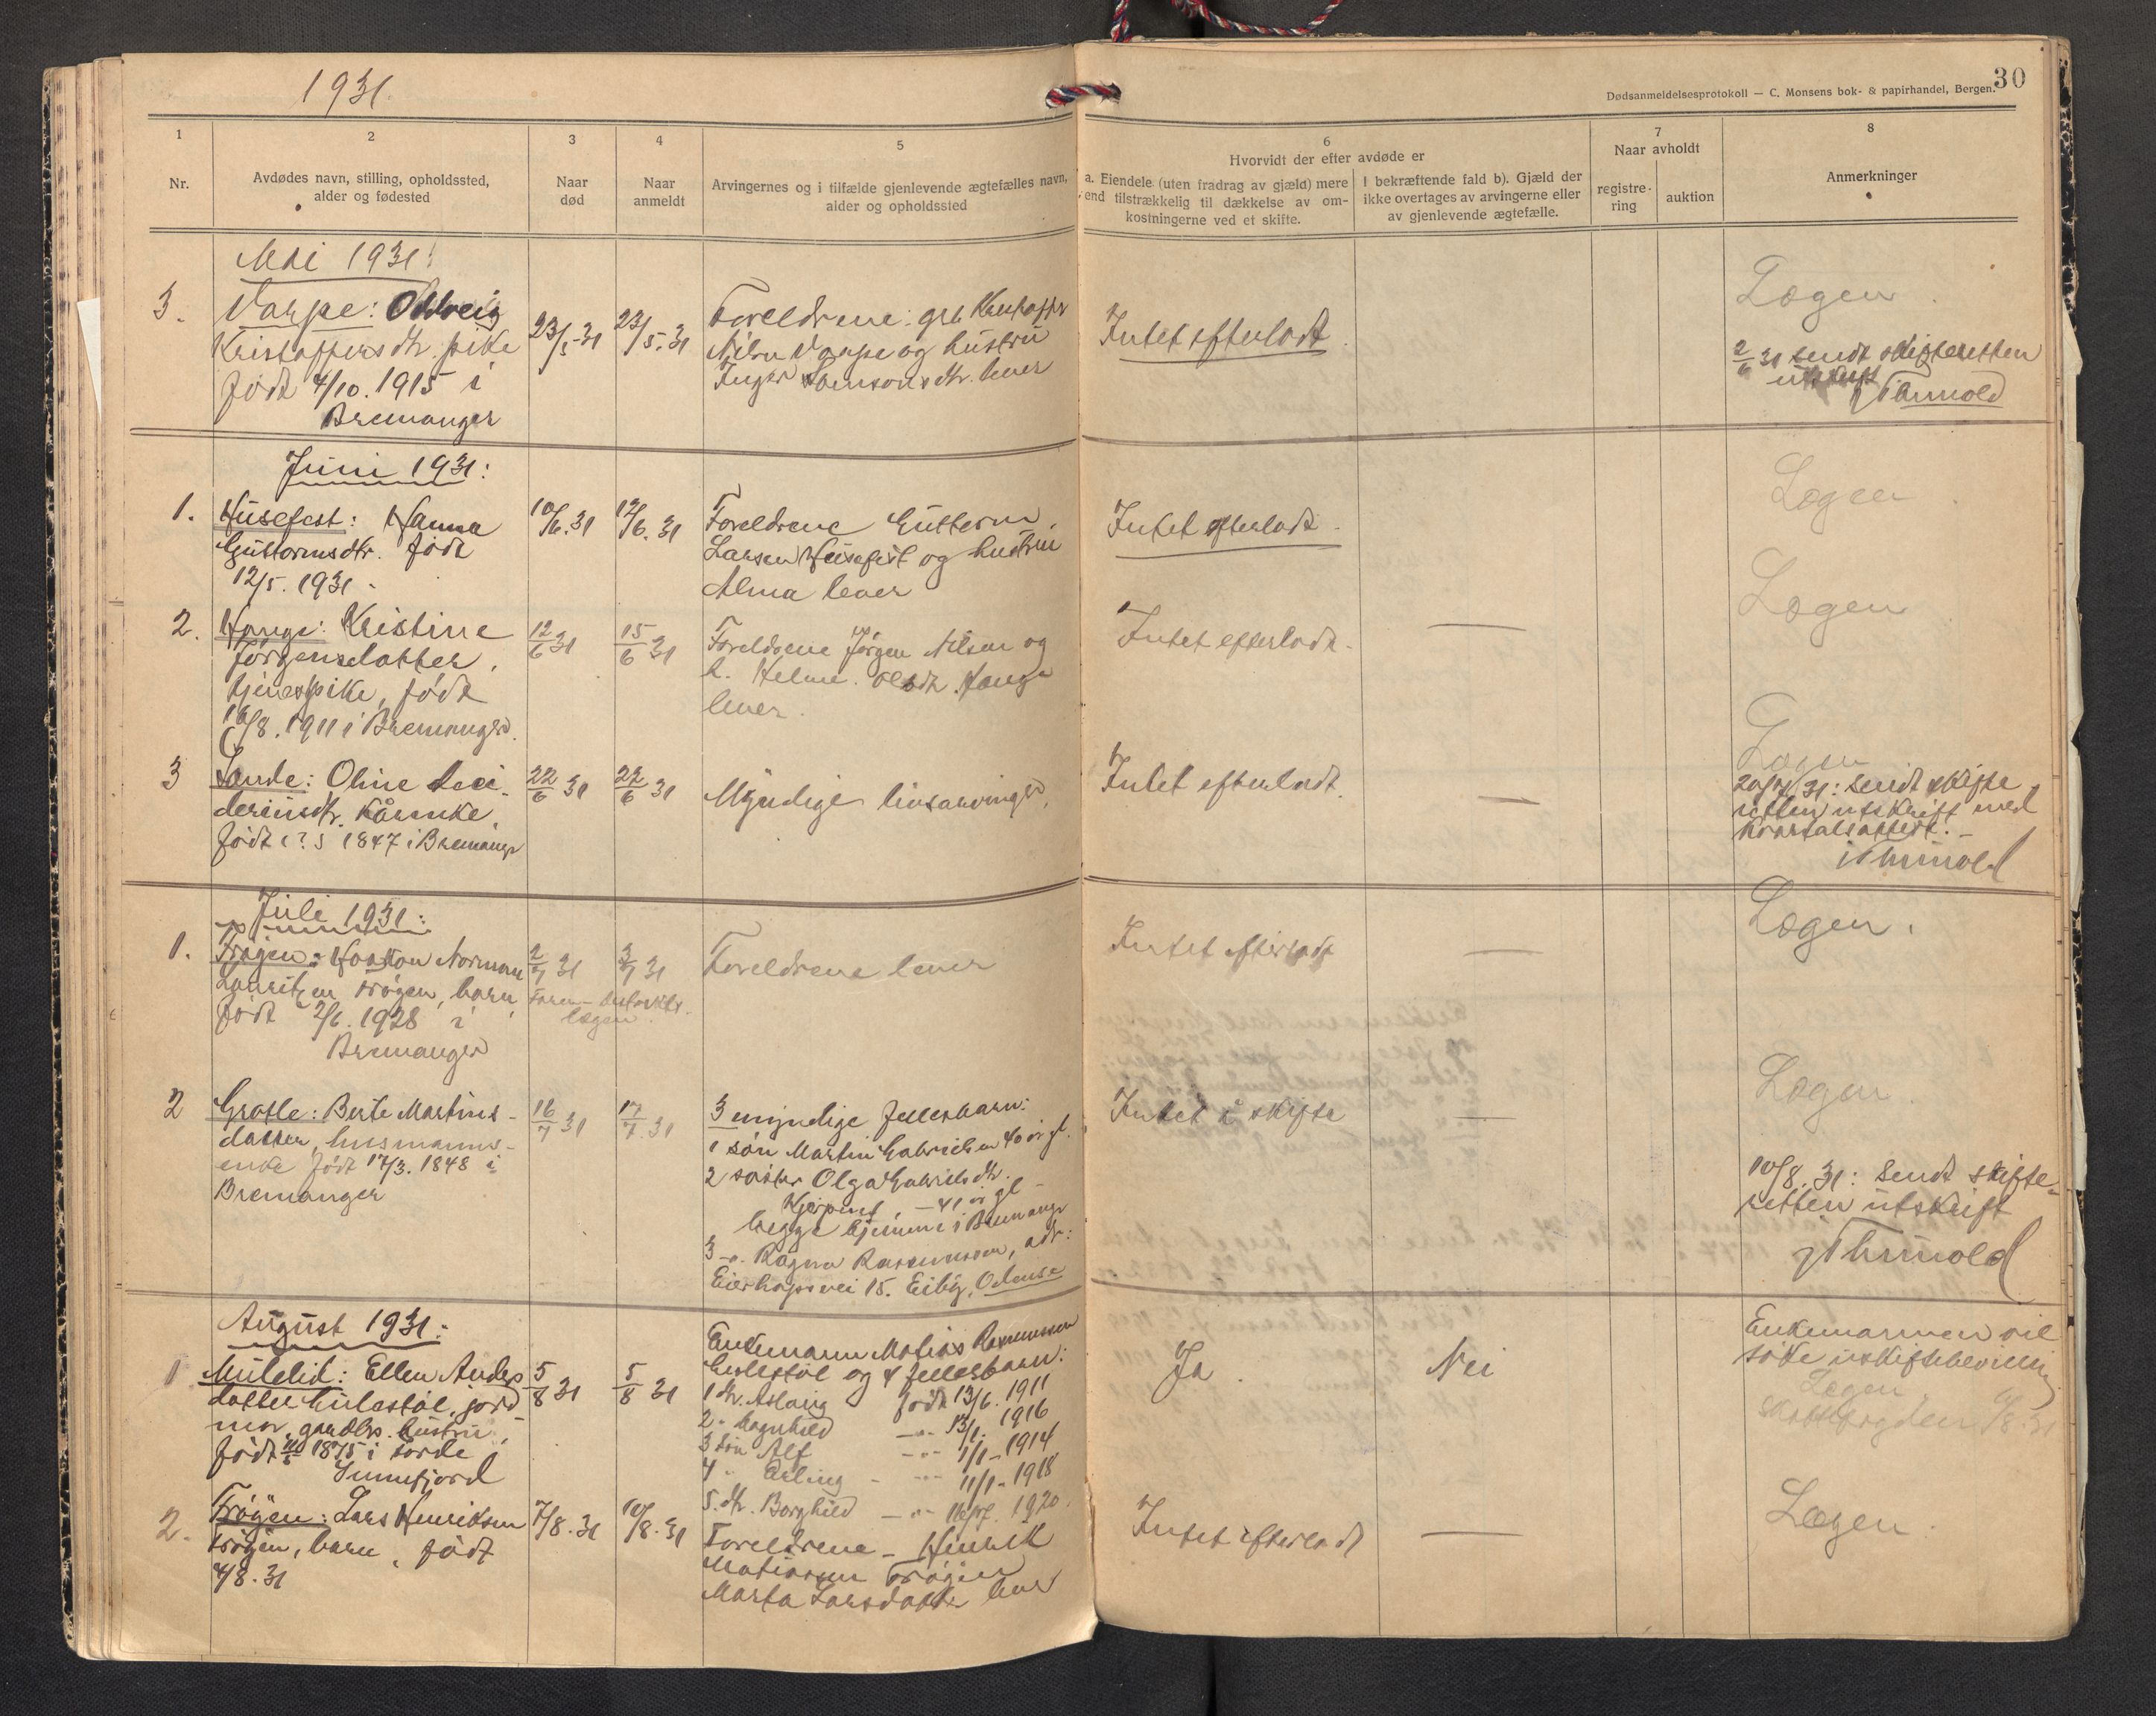 1931
30
Dødsanmeldelsesprotokoll — C. Monsens bok- & papirhandel, Bergen.
1
Nr.
2
Avdødes navn, stilling, opholdssted,
alder og fødested
3
Naar
død
4
Naar
anmeldt
5
Arvingernes og i tilfælde gjenlevende ægtefælles navn,
alder og opholdssted
6
Hvorvidt der efter avdøde er
a. Eiendele (uten fradrag av gjæld) mere
end tilstrækkelig til dækkelse av om-
kostningerne ved et skifte.
I bekræftende fald b). Gjæld der
ikke overtages av arvingerne eller
av gjenlevende ægtefælle.
7
Naar avholdt
registre-
ring
auktion
8
Anmerkninger
Mai 1931:
3.
Varpe: Oddveig
Kristoffersdtr. pike
født 4/10. 1915 i
Bremanger
23/5-31
23/5-31
Foreldrene: grb Kristoffer
Nilsen Varpe og hustru
Inger Samsonsdtr. lever
Intet efterladt.
Lægen.
2/6 31 sendt skifteretten
utskrift
Juni 1931:
1.
Husefest: Hanna
Guttormsdtr. født
12/5. 1931.
10/6.31
12/6.31
Foreldrene Guttorm
Larsen Husefest og hustru
Alma lever
Intet efterladt.
Lægen
2.
Hauge: Kristine
Jørgensdatter,
tjenestpike, født
16/8. 1911 i Bremanger.
12/6 31
15/6 31
Foreldrene Jørgen Nilsen og
h. Helene Olsdtr. Hauge
lever.
Intet efterladt. —
Lægen
3
Sande: Oline
dersinsdtr. kårenke,
født (?) 1847 i Bremanger
22/6 31
22/6 31
Myndige livsarvinger.
Intet efterladt. —
Lægen
20/7 31: Sendt skifte
retten utskrift med
kvartalsattest. -
Juli 1931:
1.
Frøyen: Haakon Norman
Lauritzen Frøyen, barn,
født 2/6. 1928 i
Bremanger
2/7 31
3/7 31
lægen.
Foreldrene lever
Intet efterladt —
Lægen.
2
Grotle: Berte Martins-
datter, husmanns-
enke født 17/3. 1848 i
Bremanger
16/7 31
17/7. 31
3 myndige fellesbarn:
1 søn Martin Gabrielsen 40 år gl.
2 datter Olga Gabrielsdtr.
— 41 år gl -
begge hjemme i Bremanger
3 -"- Ragna Rasmussen, adr:
15. Eiby, Odense
Intet å skifte —
Lægen.
10/8. 31: Sendt skifte-
retten utskrift
August 1931:
1
Myklid: Ellen Anders
datter Gulestøl, jord
mor, gardbr. hustru,
født 1875 i Førde
Sunnfjord
5/8 31
5/8 31
Enkemann Matias Rasmussen
Gulestøl og 4 fellesbarn:
1 dtr. Aslaug født 13/6. 1911
2 - Magnhild -"- 13/1. 1916
3 søn Alf -"- 1/1 - 1914
4 - Erling -"- 11/1 - 1918
5. dtr. Borghild -"- 16/7. 1920.
Ja.
Nei
Enkemannen vil
søke uskiftebevilling
Lægen.
8. 31
2.
Frøyen: Lars Henriksen
Frøyen, barn, født
4/8. 31
7/8. 31
10/8. 31
Foreldrene - Henrik
Matiassen Frøyen
Marta Larsdatter lever
Intet efterladt —
Lægen.